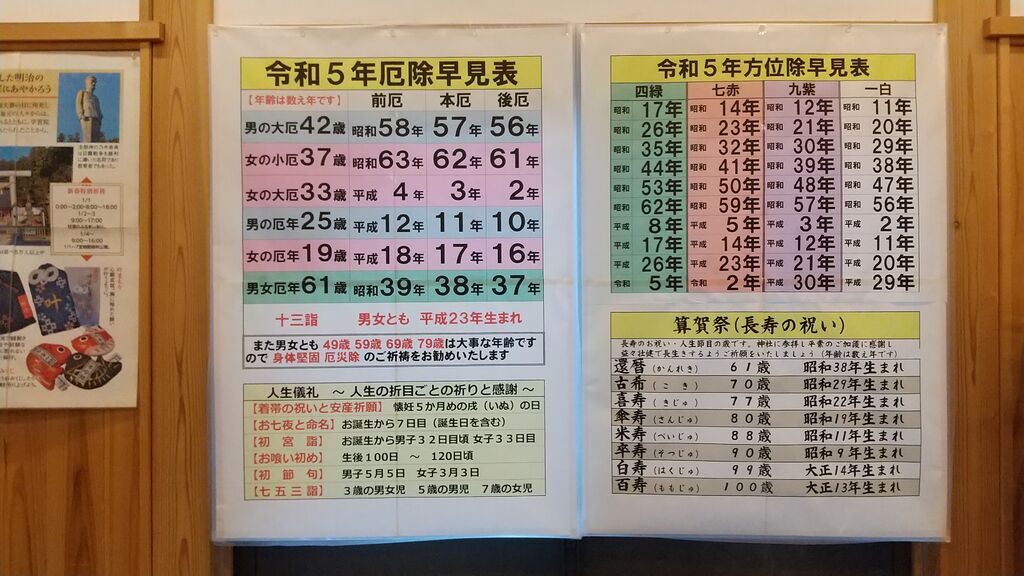 した明治の
にあやかろう
新春特別祈祷
1/1
0:00~2:00・8:00~18:00
1/2~3
9:00~17:00
1/4~
9:00~16:00
叶
令和5年厄除早見表
【年齢は数え年です】 前厄 本厄 後厄
男の大厄42歳 昭和58年 57年 56年
女の小厄37歳 昭和63年 62年 61年
女の大厄33歳 平成 4年 3年 2年
男の厄年25歳 平成12年 11年 10年
女の厄年19歳 平成18年 17年 16年
男女厄年61歳 昭和39年 38年 37年
十三詣 男女とも 平成23年生まれ
また男女とも 49歳 59歳 69歳 79歳は大事な年齢です
ので 身体堅固 厄災除 のご祈祷をお勧めいたします
人生儀礼 ~ 人生の折目ごとの祈りと感謝 ~
【着帯の祝いと安産祈願】 懐妊5か月めの戌(いぬ)の日
【お七夜と命名】 お誕生から7日目(誕生日を含む)
【初宮詣】 お誕生から男子32日目頃 女子33日目
【お喰い初め】 生後100日 ~ 120日頃
【初節句】 男子5月5日 女子3月3日
【七五三詣】 3歳の男女児 5歳の男児 7歳の女児
令和5年方位除早見表
四緑 七赤 九紫 一白
昭和 17年 昭和 14年 昭和 12年 昭和 11年
昭和 26年 昭和 23年 昭和 21年 昭和 20年
昭和 35年 昭和 32年 昭和 30年 昭和 29年
昭和 44年 昭和 41年 昭和 39年 昭和 38年
昭和 53年 昭和 50年 昭和 48年 昭和 47年
昭和 62年 昭和 59年 昭和 57年 昭和 56年
平成 8年 平成 5年 平成 3年 平成 2年
平成 17年 平成 14年 平成 12年 平成 11年
平成 26年 平成 23年 平成 21年 平成 20年
令和 5年 令和 2年 平成 30年 平成 29年
算賀祭(長寿の祝い)
長寿のお祝い・人生節目の歳です。神社に参拝し平素のご加護に感謝し
益々壮健で長生きするようご祈願をいたしましょう(年齢は数え年です)
還暦(かんれき) 61歳 昭和38年生まれ
古希(こき) 70歳 昭和29年生まれ
喜寿(きじゅ) 77歳 昭和22年生まれ
傘寿(さんじゅ) 80歳 昭和19年生まれ
米寿(べいじゅ) 88歳 昭和11年生まれ
卒寿(そつじゅ) 90歳 昭和9年生まれ
白寿(はくじゅ) 99歳 大正14年生まれ
百寿(ももじゅ) 100歳 大正13年生まれ